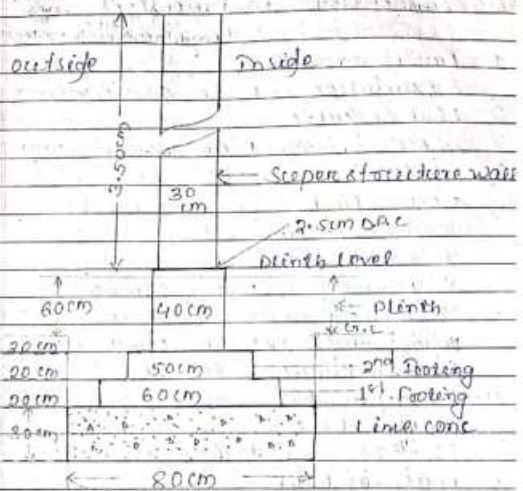 outside
Inside
3.50cm
30
cm
Super structure wall
2.5cm DPC
plinth level
60cm
40cm
Plinth
G.L
20cm
20cm
50cm
2nd Footing
20cm
60cm
1st Footing
30cm
Lime conc
80cm